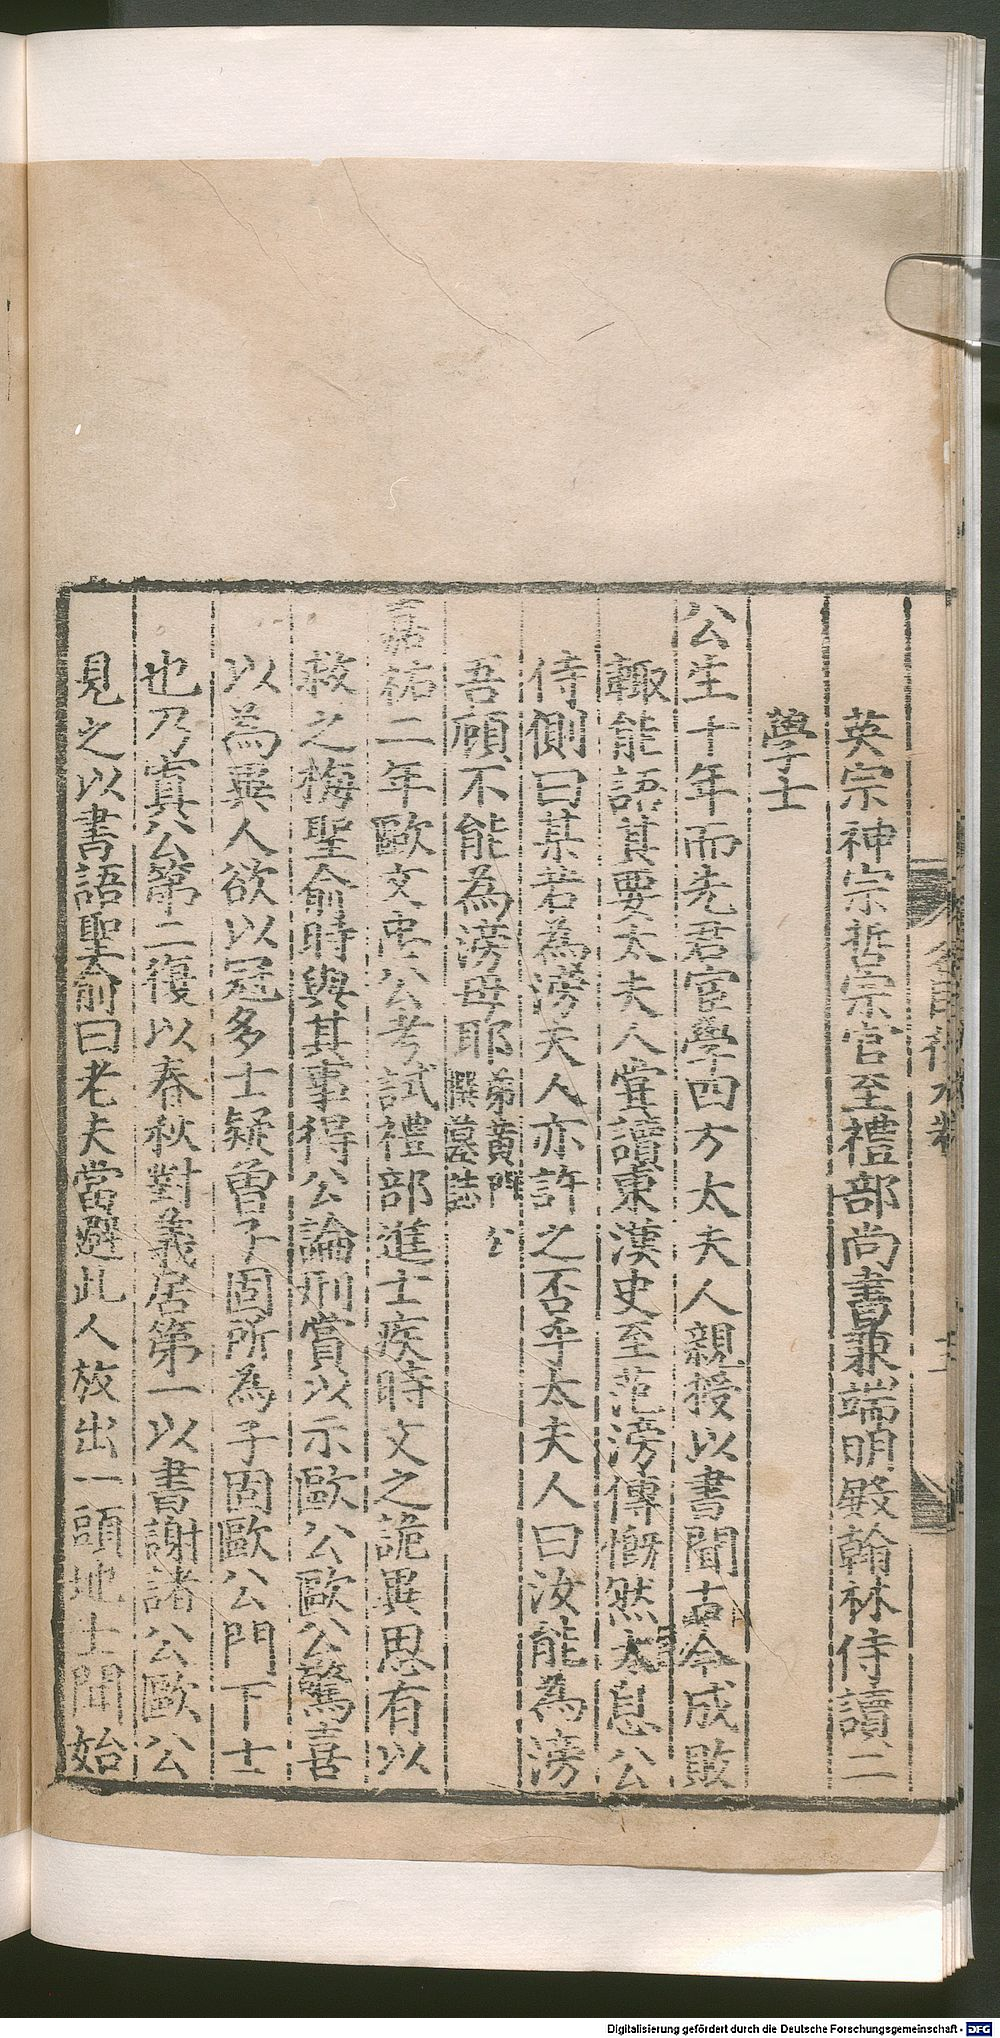 英宗神宗哲宗官至禮部尚書兼端明殿翰林侍讀二
學士
公生十年而先君宦學四方太夫人親授以書聞古今成敗
輙能語其要太夫人嘗讀東漢史至范滂傳慨然太息公
侍側曰某若為滂夫人亦許之否乎太夫人曰汝能為滂
吾顧不能為滂母耶弟黃門公
撰墓誌
嘉祐二年歐文忠公考試禮部進士疾時文之詭異思有以
救之梅聖俞時與其事得公論刑賞以示歐公歐公驚喜
以為異人欲以冠多士疑曾子固所為子固歐公門下士
也乃寘公第二復以春秋對義居第一以書謝諸公歐公
見之以書語聖俞曰老夫當避此人放出一頭地士聞始
Digitalisierung gefördert durch die Deutsche Forschungsgemeinschaft - DFG